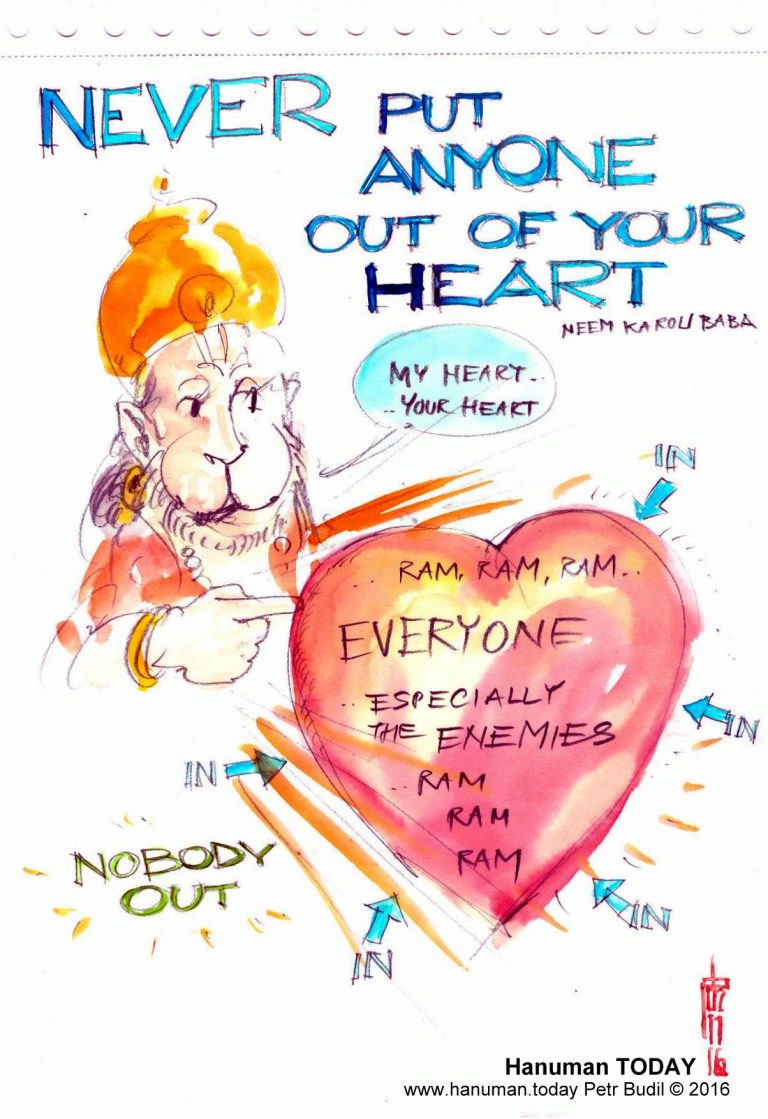 NEVER PUT
ANYONE
OUT OF YOUR
HEART
NEEM KAROLI BABA
MY HEART..
..YOUR HEART
IN
..RAM, RAM, RAM..
EVERYONE
..ESPECIALLY
THE ENEMIES
IN
IN
..RAM
RAM
RAM
NOBODY
OUT
IN
IN
Hanuman TODAY
www.hanuman.today Petr Budil © 2016